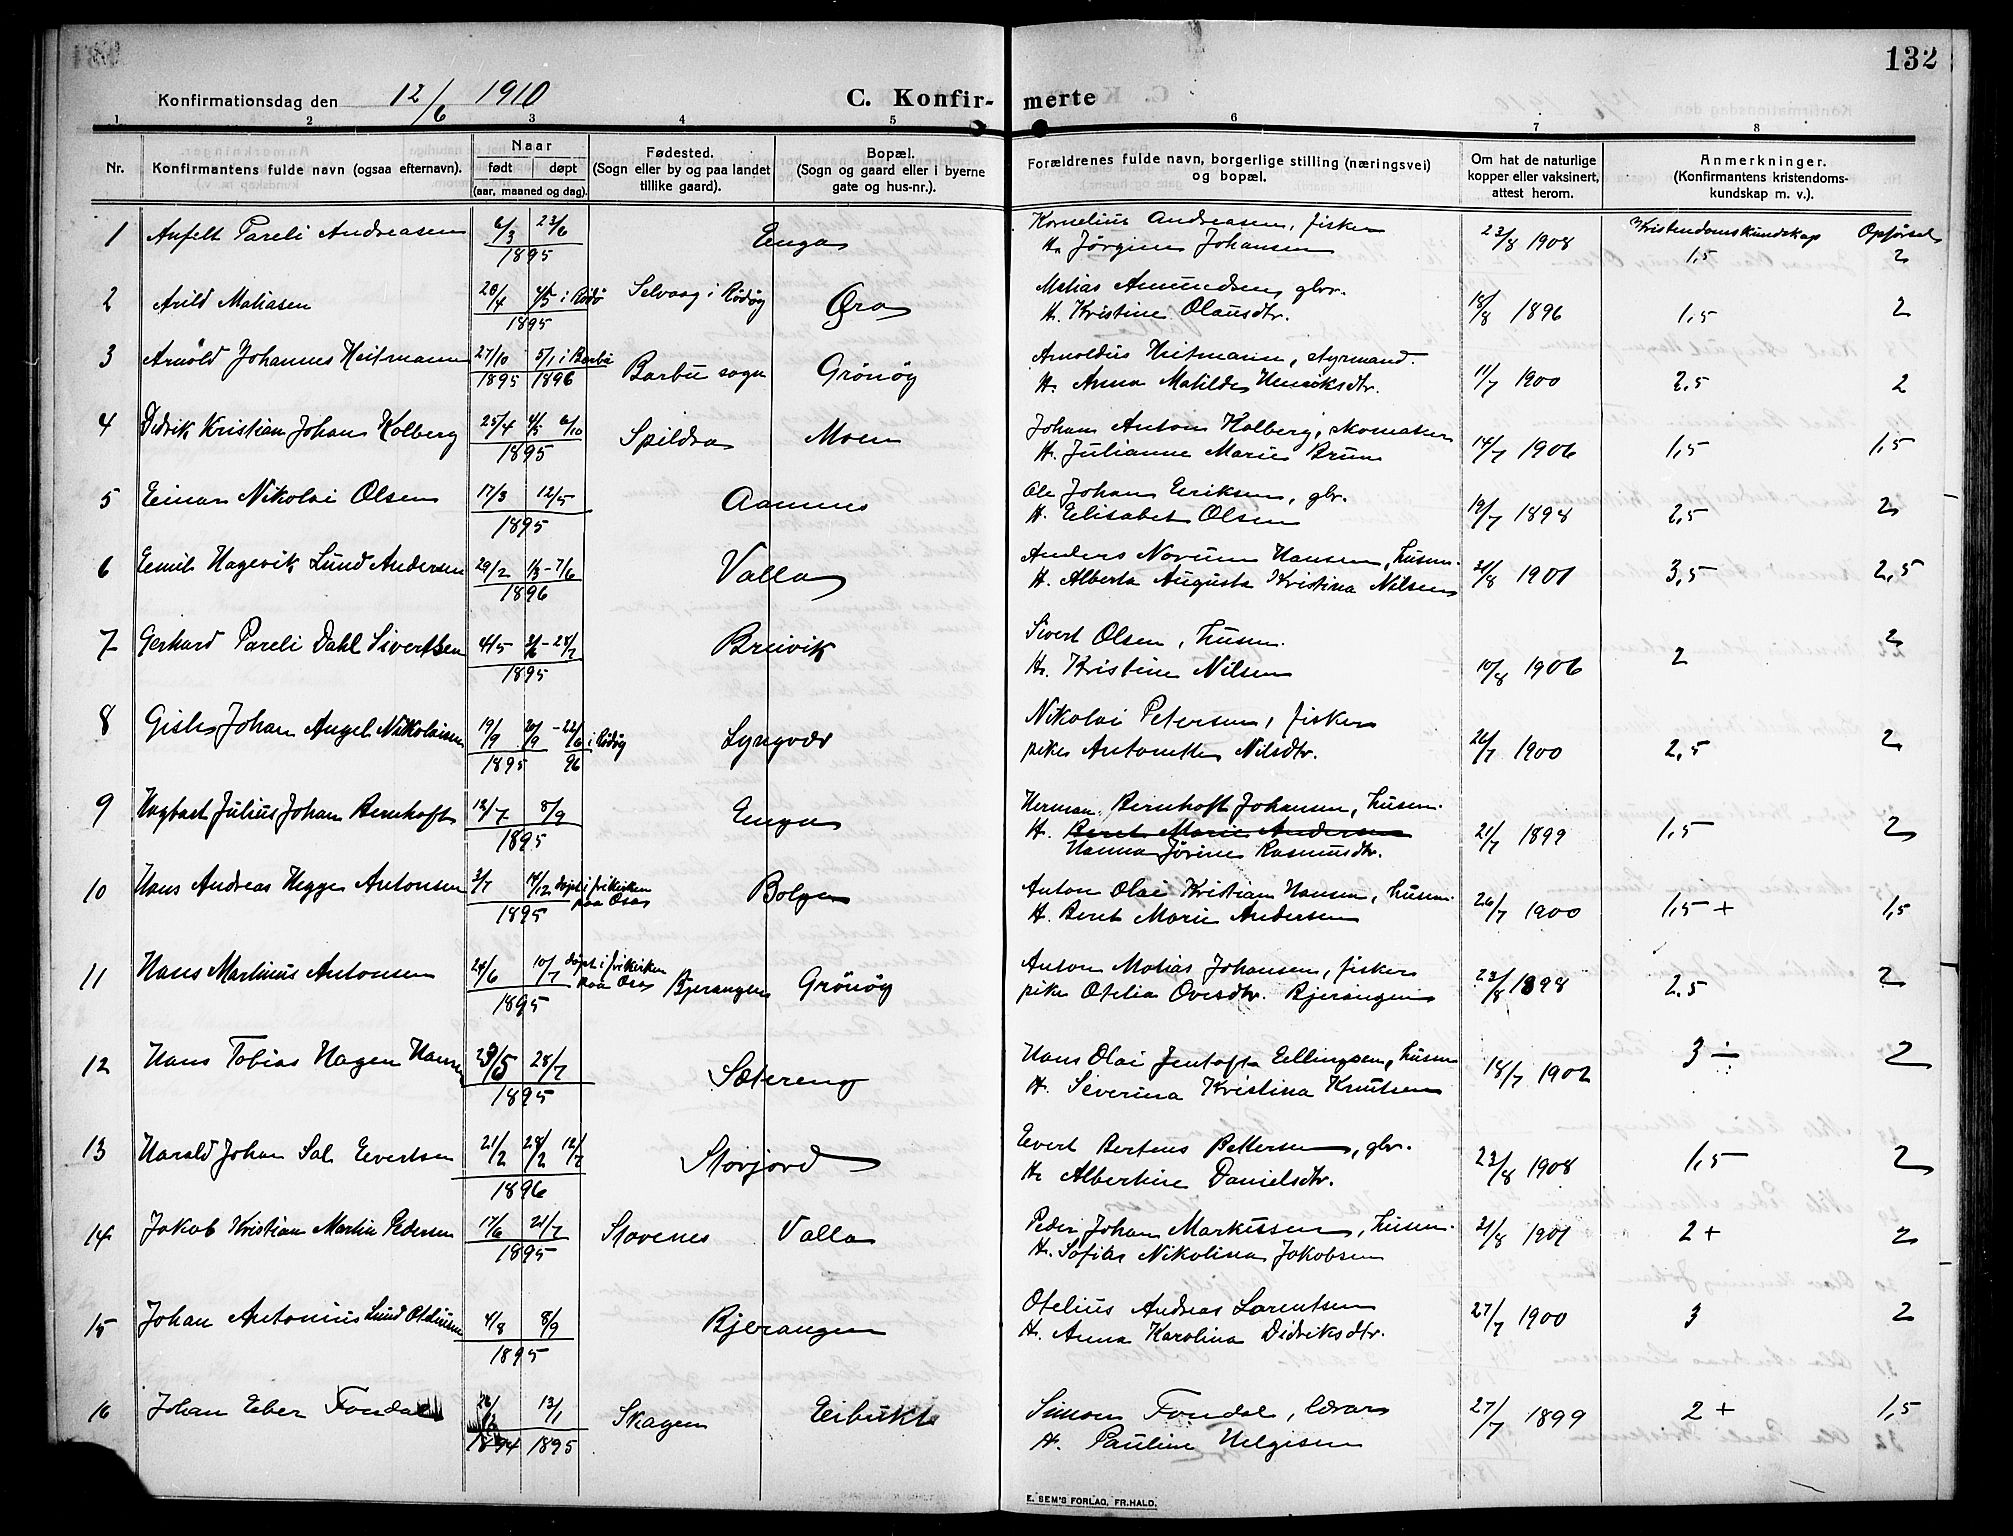 132
Konfirmationsdag den 12/6 1910
C. Konfir- merte
1. 2 3 4 5 6 7 8
Nr. Konfirmantens fulde navn (ogsaa efternavn). Naar født døpt (aar, maaned og dag). Fødested. (Sogn eller by og paa landet tillike gaard). Bopæl. (Sogn og gaard eller i byerne gate og hus-nr.). Forældrenes fulde navn, borgerlige stilling (næringsvei) og bopæl. Om hat de naturlige kopper eller vaksinert, attest herom. Anmerkninger. (Konfirmantens kristendoms- kundskap m. v.).
Kristendomskundskap Opførsel
1 Anfelt Pareli Andreasen 6/3 23/6 1895 Enga Kornelius Andreasen, fisker
H. Jörgine Johansen 23/8 1908 1,5 2
2 Arild Matiasen 20/4 4/5 i Rödö 1895 Selvaag i Rödöy Øra Matias Amundsen, gbr.
H. Kristine Olausdtr. 18/8 1896 1,5 2
3 Arnold Johannes Heitmann 27/10 1895 5/1 i Barbu 1896 Barbu sogn Grönöy Arnoldus Heitmann, styrmand.
H. Anna Matilde Henriksdtr. 11/7 1900 2,5 2
4 Didrik Kristian Johan Kolberg 25/4 4/5 6/10 1895 Spildra Moen Johan Anton Kolberg, skomaker
H. Julianne Marie Bruun 14/7 1906 1,5 1,5
5 Einar Nikolai Olsen 17/3 12/5 1895 Aamnes Ole Johan Eriksen, gbr.
H. Elisabet Olsen 19/7 1898 2,5 2
6 Emil Hagevik Lund Andersen 29/2 1/3-7/6 1896 Valla Anders Norum Hansen, husm.
H. Alberta Augusta Kristina Nilsen 21/8 1901 3,5 2,5
7 Gerhard Pareli Dahl Sivertsen 4/5 3/6-28/7 1895 Breivik Sivert Olsen, husm.
H. Kristine Nilsen 10/8 1906 2 2
8 Gisle Johan Angel Nikolaisen 19/9 20/9 - 22/6 i Rödöy 1895 96 Lyngvær Nikolai Petersen, fisker
pike Antonette Nilsdtr. 26/7 1900 2,5 2
9 Hagbart Julius Johan Bernhoft 12/7 8/9 1895 Enga Herman Bernhoft Johansen, husm.
H. Beret Marie Andersen
Hanna Jörine Rasmusdtr. 21/7 1899 1,5 2
10 Hans Andreas Hegge Antonsen 3/7 14/12 döpt i frikirken paa Osa 1895 Bolga Anton Olai Kristian Hansen, husm.
H. Beret Marie Andersen 26/7 1900 1,5 + 1,5
11 Hans Martinius Antonsen 24/6 10/7 döpt i frikirken paa Osa 1895 Bjerangen Grönöy Anton Matias Johansen, fisker
pike Otelia Ovesdtr. Bjerangen 23/8 1898 2.5 2
12 Hans Tobias Hagen Hansen 29/5 28/7 1895 Sætereng Hans Olai Jentoft Ellingsen, husm
H. Severina Kristina Knutsen 18/7 1902 3 ÷ 2
13 Harald Johan Sal. Evertsen 21/2 28/2 12/7 1896 Storjord Evert Berteus Pettersen, gbr.
H. Albertine Danielsdtr. 23/8 1908 1,5 2
14 Jakob Kristian Martin Pedersen 17/6 21/7 1895 Stovenes Valla Peder Johan Markussen, husm.
H. Sofie Nikolina Jakobsen 21/8 1901 2 + 2
15 Johan Antonius Lund Oteliussen 4/8 8/9 1895 Bjerangen Otelius Andreas Lorentsen
H. Anna Karolina Didriksdtr. 27/7 1900 3 2
16 Johan Eber Fondal 26/12 1894 13/1 1895 Skagen Eibukt Simon Fondal, lærer
H. Pauline Helgesen 27/7 1899 2 + 1,5
E. SEM'S FORLAG, FR.HALD.